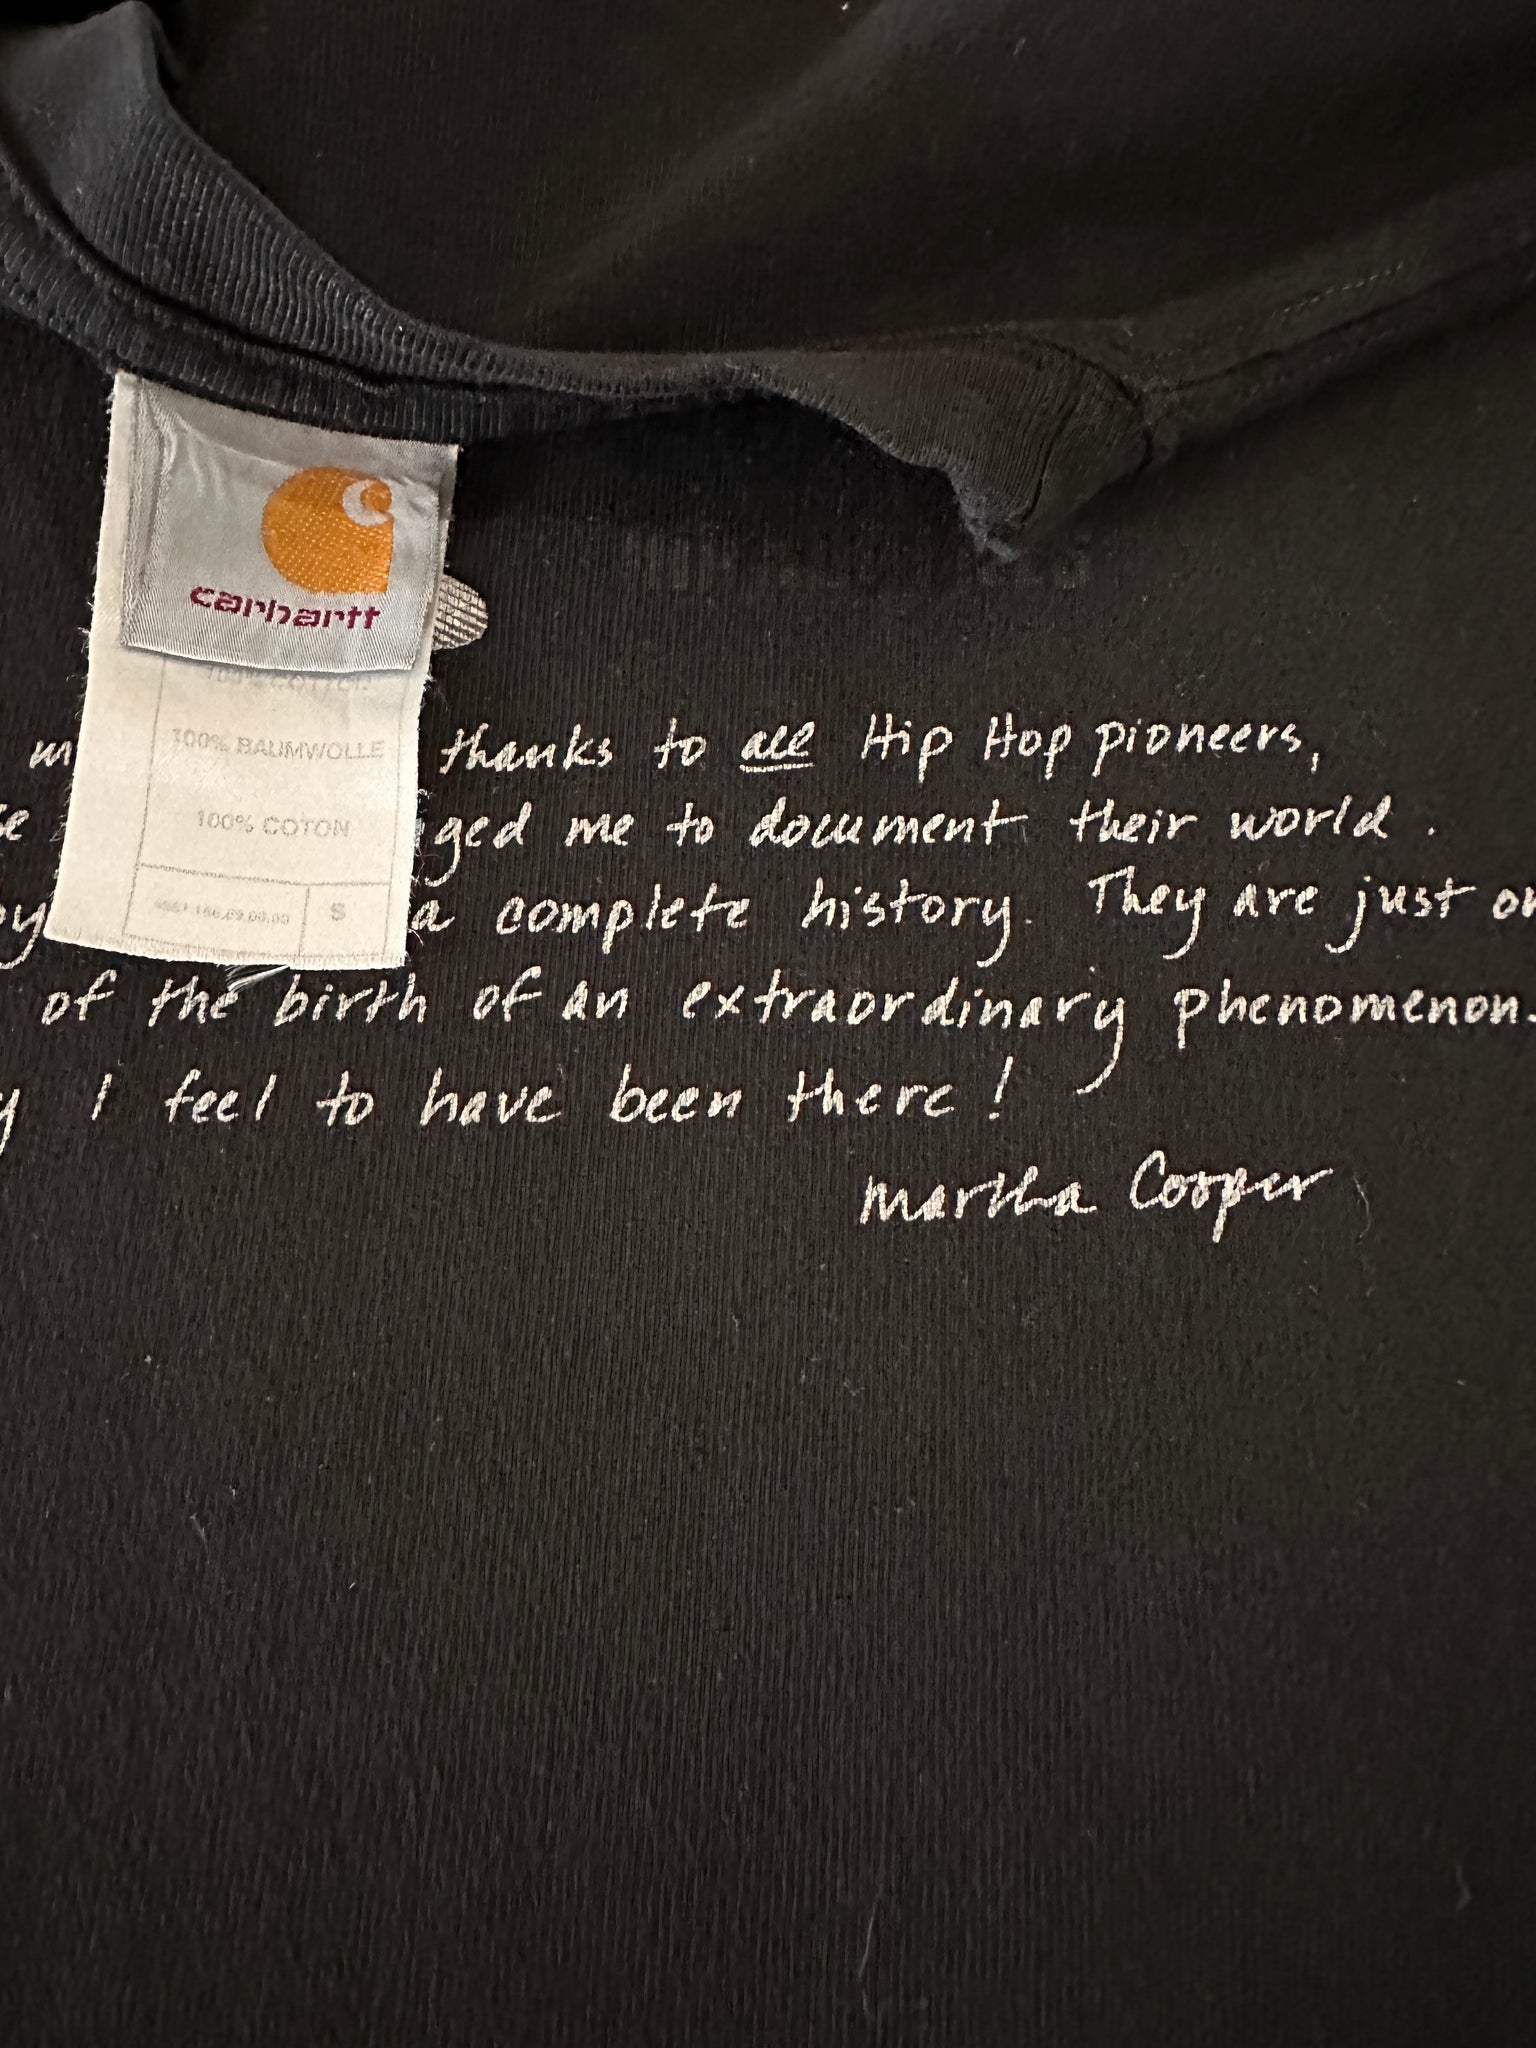 carhartt
100% BAUMWOLLE
100% COTON
S
thanks to all Hip Hop pioneers,
me to document their world.
a complete history. They are just
of the birth of an extraordinary phenomenon.
I feel to have been there!
Martha Cooper